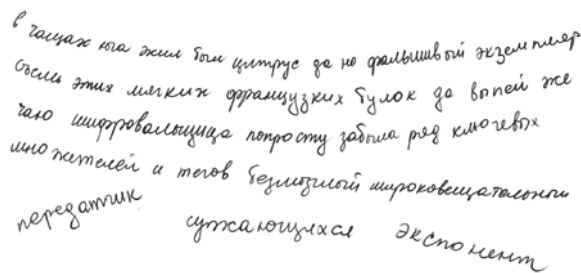 в чащах юга жил был цитрус да но фальшивый экземпляр
съешь этих мягких французских булок да выпей же
чаю шифровальщица попросту забыла ряд ключевых
множителей и тегов безмозглый широковещательный
передатчик сужающихся экспонент